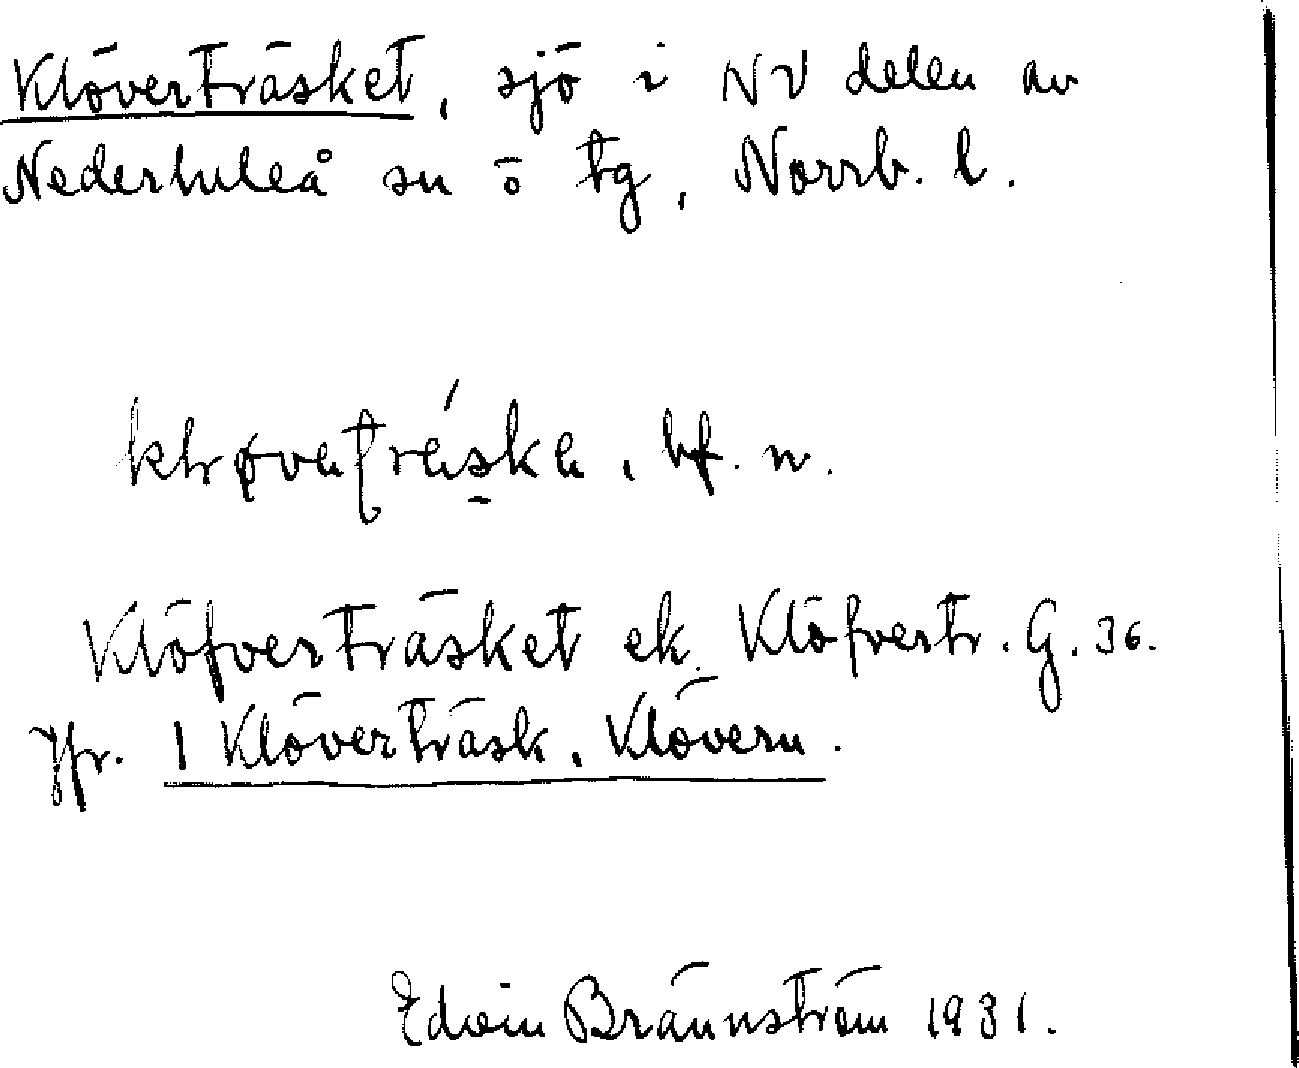 Klöverträsket, sjö i NV delen av
Nederluleå sn ö tg, Norrb. l.
bf. n.
Klöfverträsket ek. Klöfvertr. G. 36.
Jfr. 1 Klöverträsk, Klövern.
Edvin Brännström 1931.